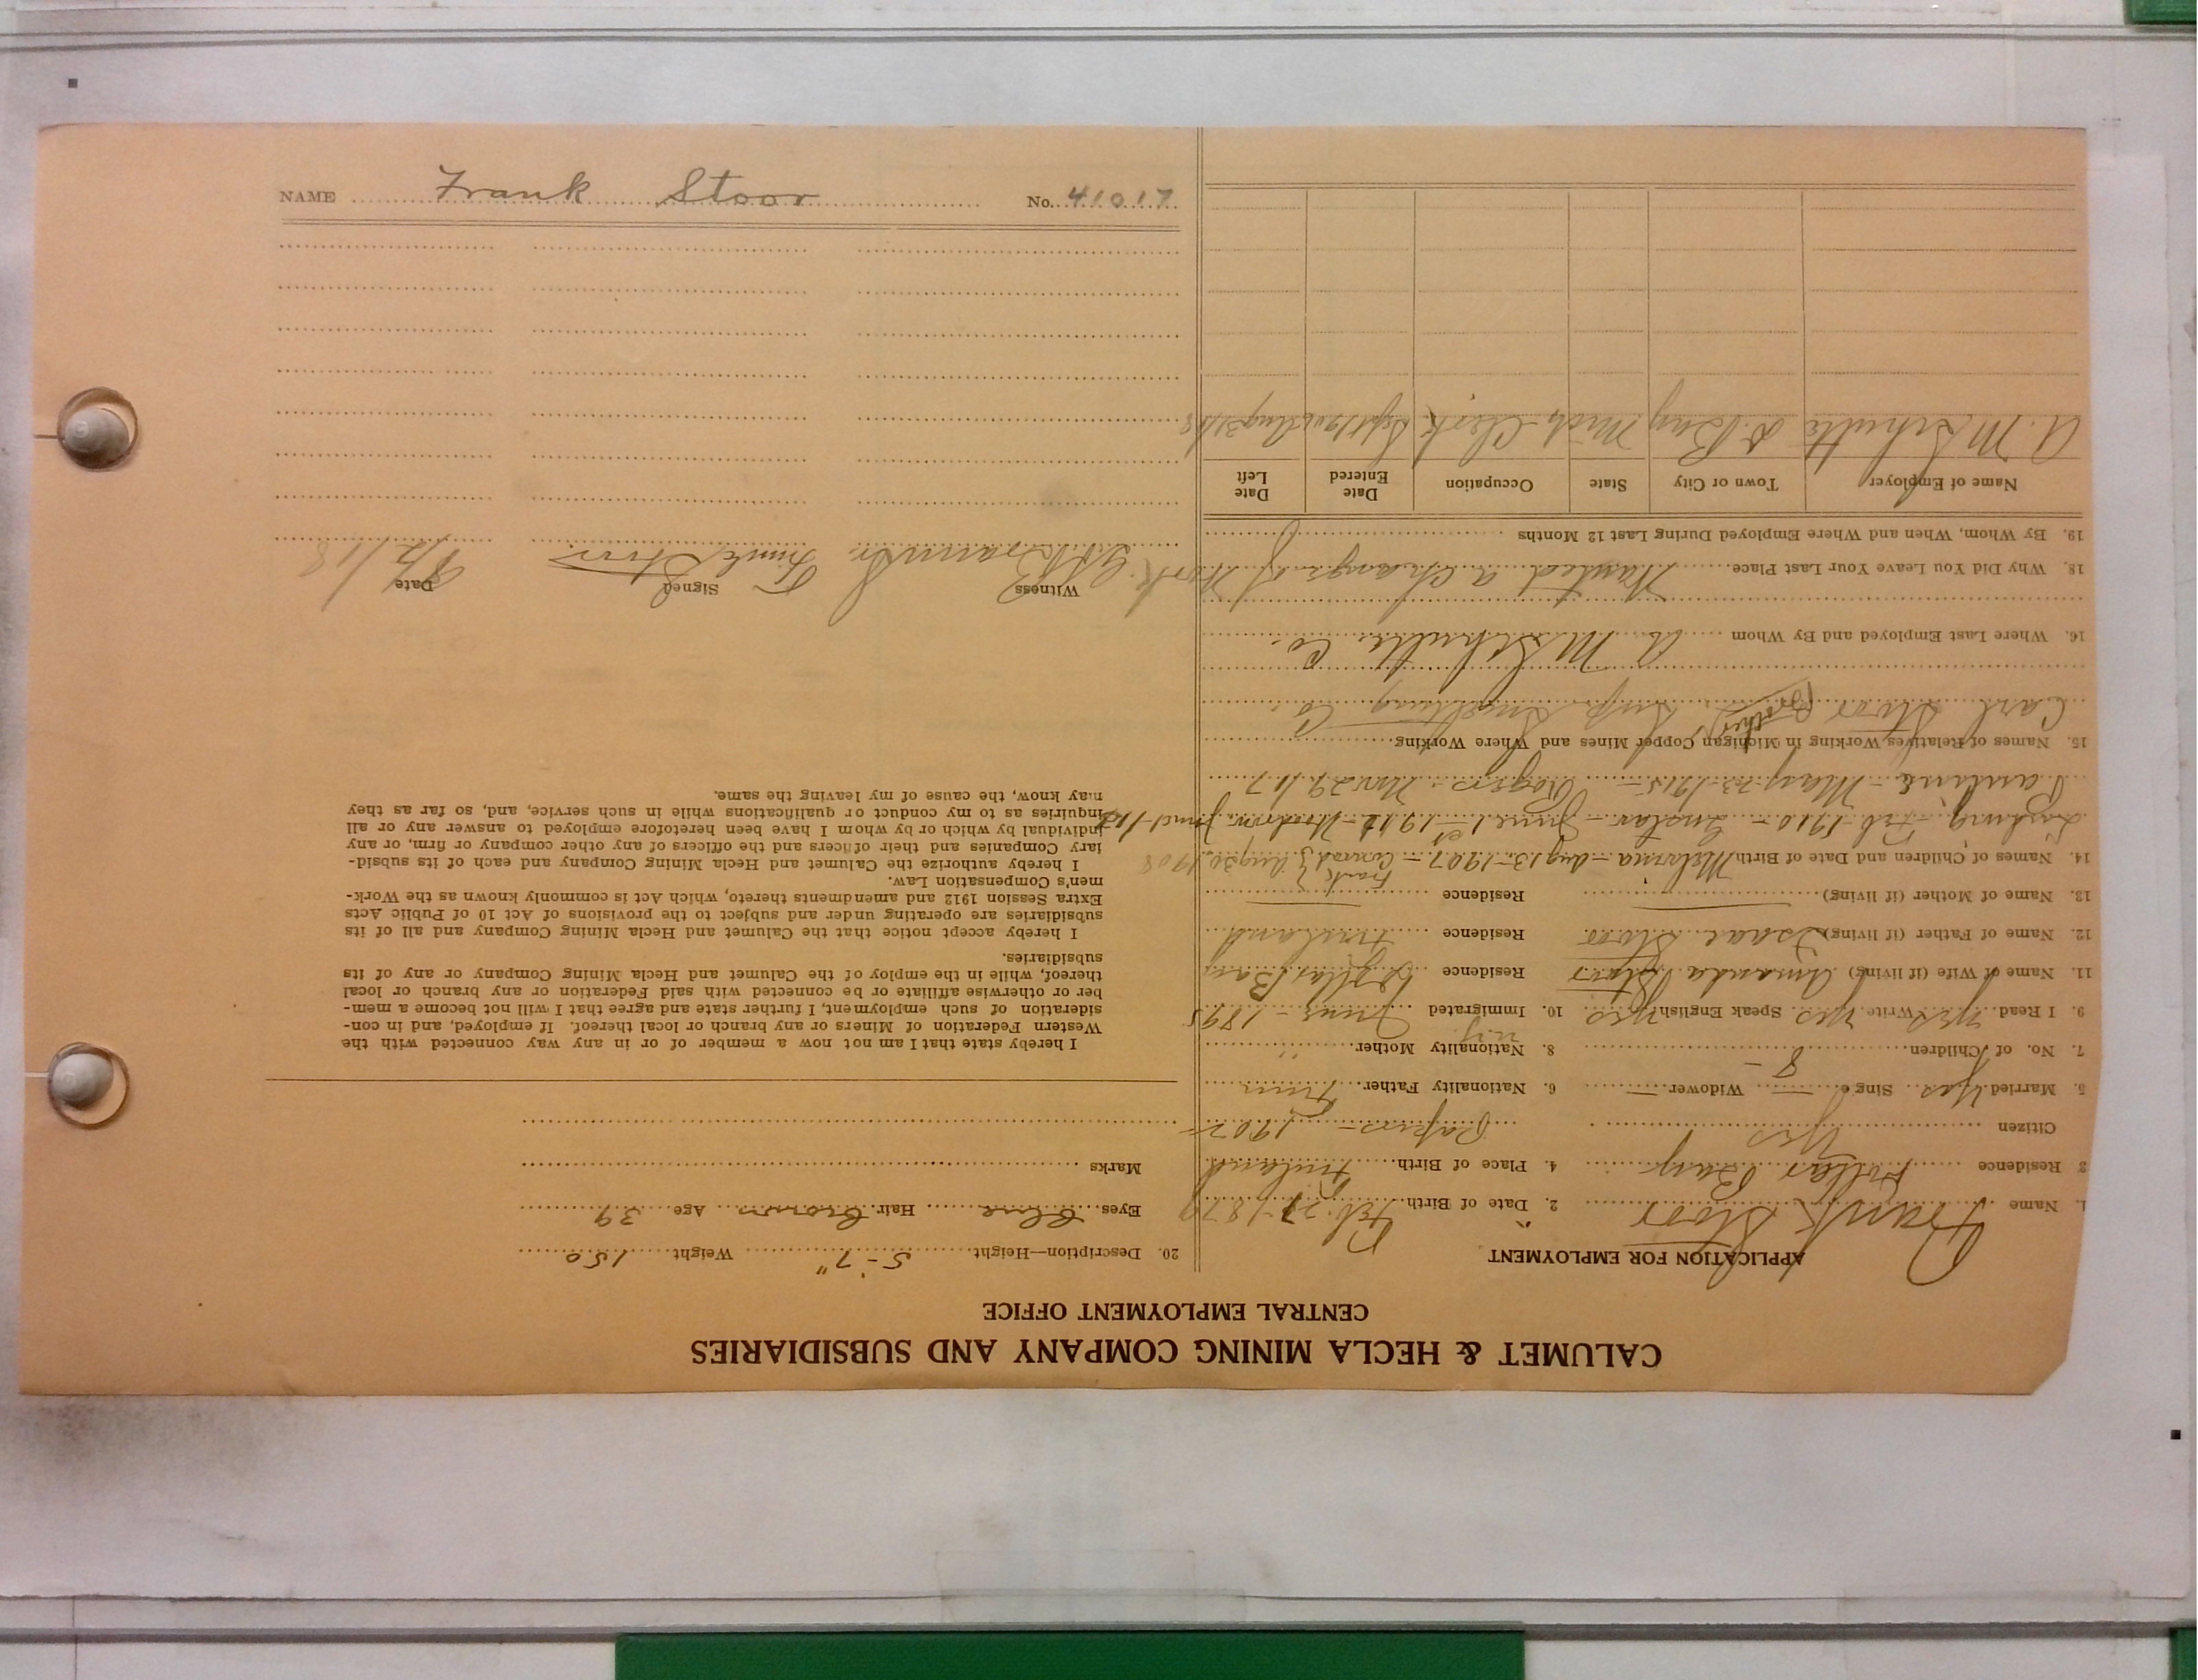 CALUMET & HECLA MINING COMPANY AND SUBSIDIARIES
CENTRAL EMPLOYMENT OFFICE
APPLICATION FOR EMPLOYMENT
1. Name Frank Stoor 2. Date of Birth Feb. 27-1879
3 Residence Dollar Bay 4. Place of Birth Finland
Citizen Yes Papers - 1902
5. Married Yes Single — Widower — 6. Nationality Father Finn
7. No. of Children 8 8. Nationality Mother "
9. I Read Yes Write Yes Speak English Yes 10. Immigrated June - 1895
11. Name of Wife (if living) Amanda Stoor Residence Dollar Bay
12. Name of Father (if living) Isaac Stoor Residence Finland
13. Name of Mother (if living) Residence
14. Names of Children and Date of Birth Melanna - Aug 13-1907 - Frank & Conrad Aug 30 1908
Feb 1910 - Gustav - June 1st 1912 - Woodrow
Pauline - May 23-1915 - Rogers - Nov 29/17
15. Names of Relatives Working in Michigan Copper Mines and Where Working
Carl Stoor Brother Sup. Smelting Co.
16. Where Last Employed and By Whom A. M. Schulte Co.
18. Why Did You Leave Your Last Place Wanted a Change of Work.
19. By Whom, When and Where Employed During Last 12 Months
Name of Employer Town or City State Occupation Date Entered Date Left
A. M Schulte D. Bay Mich Clerk Sept 1906 Aug 31/18
20. Description—Height 5-7" Weight 150
Eyes Blue Hair Brown Age 39
Marks
I hereby state that I am not now a member of or in any way connected with the
Western Federation of Miners or any branch or local thereof. If employed, and in con-
sideration of such employment, I further state and agree that I will not become a mem-
ber or otherwise affiliate or be connected with said Federation or any branch or local
thereof, while in the employ of the Calumet and Hecla Mining Company or any of its
subsidiaries.
I hereby accept notice that the Calumet and Hecla Mining Company and all of its
subsidiaries are operating under and subject to the provisions of Act 10 of Public Acts
Extra Session 1912 and amendments thereto, which Act is commonly known as the Work-
men's Compensation Law.
I hereby authorize the Calumet and Hecla Mining Company and each of its subsid-
iary Companies and their officers and the officers of any other company or firm, or any
individual by which or by whom I have been heretofore employed to answer any or all
inquiries as to my conduct or qualifications while in such service, and, so far as they
may know, the cause of my leaving the same.
Witness Signed Date
Frank Stoor 9/2/18
NAME Frank Stoor No. 41017